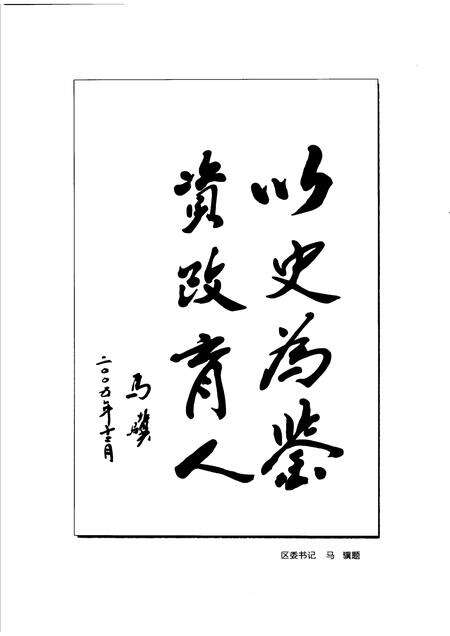 以史为鉴
资政育人
马骥
二〇〇五年十二月
区委书记 马骥题